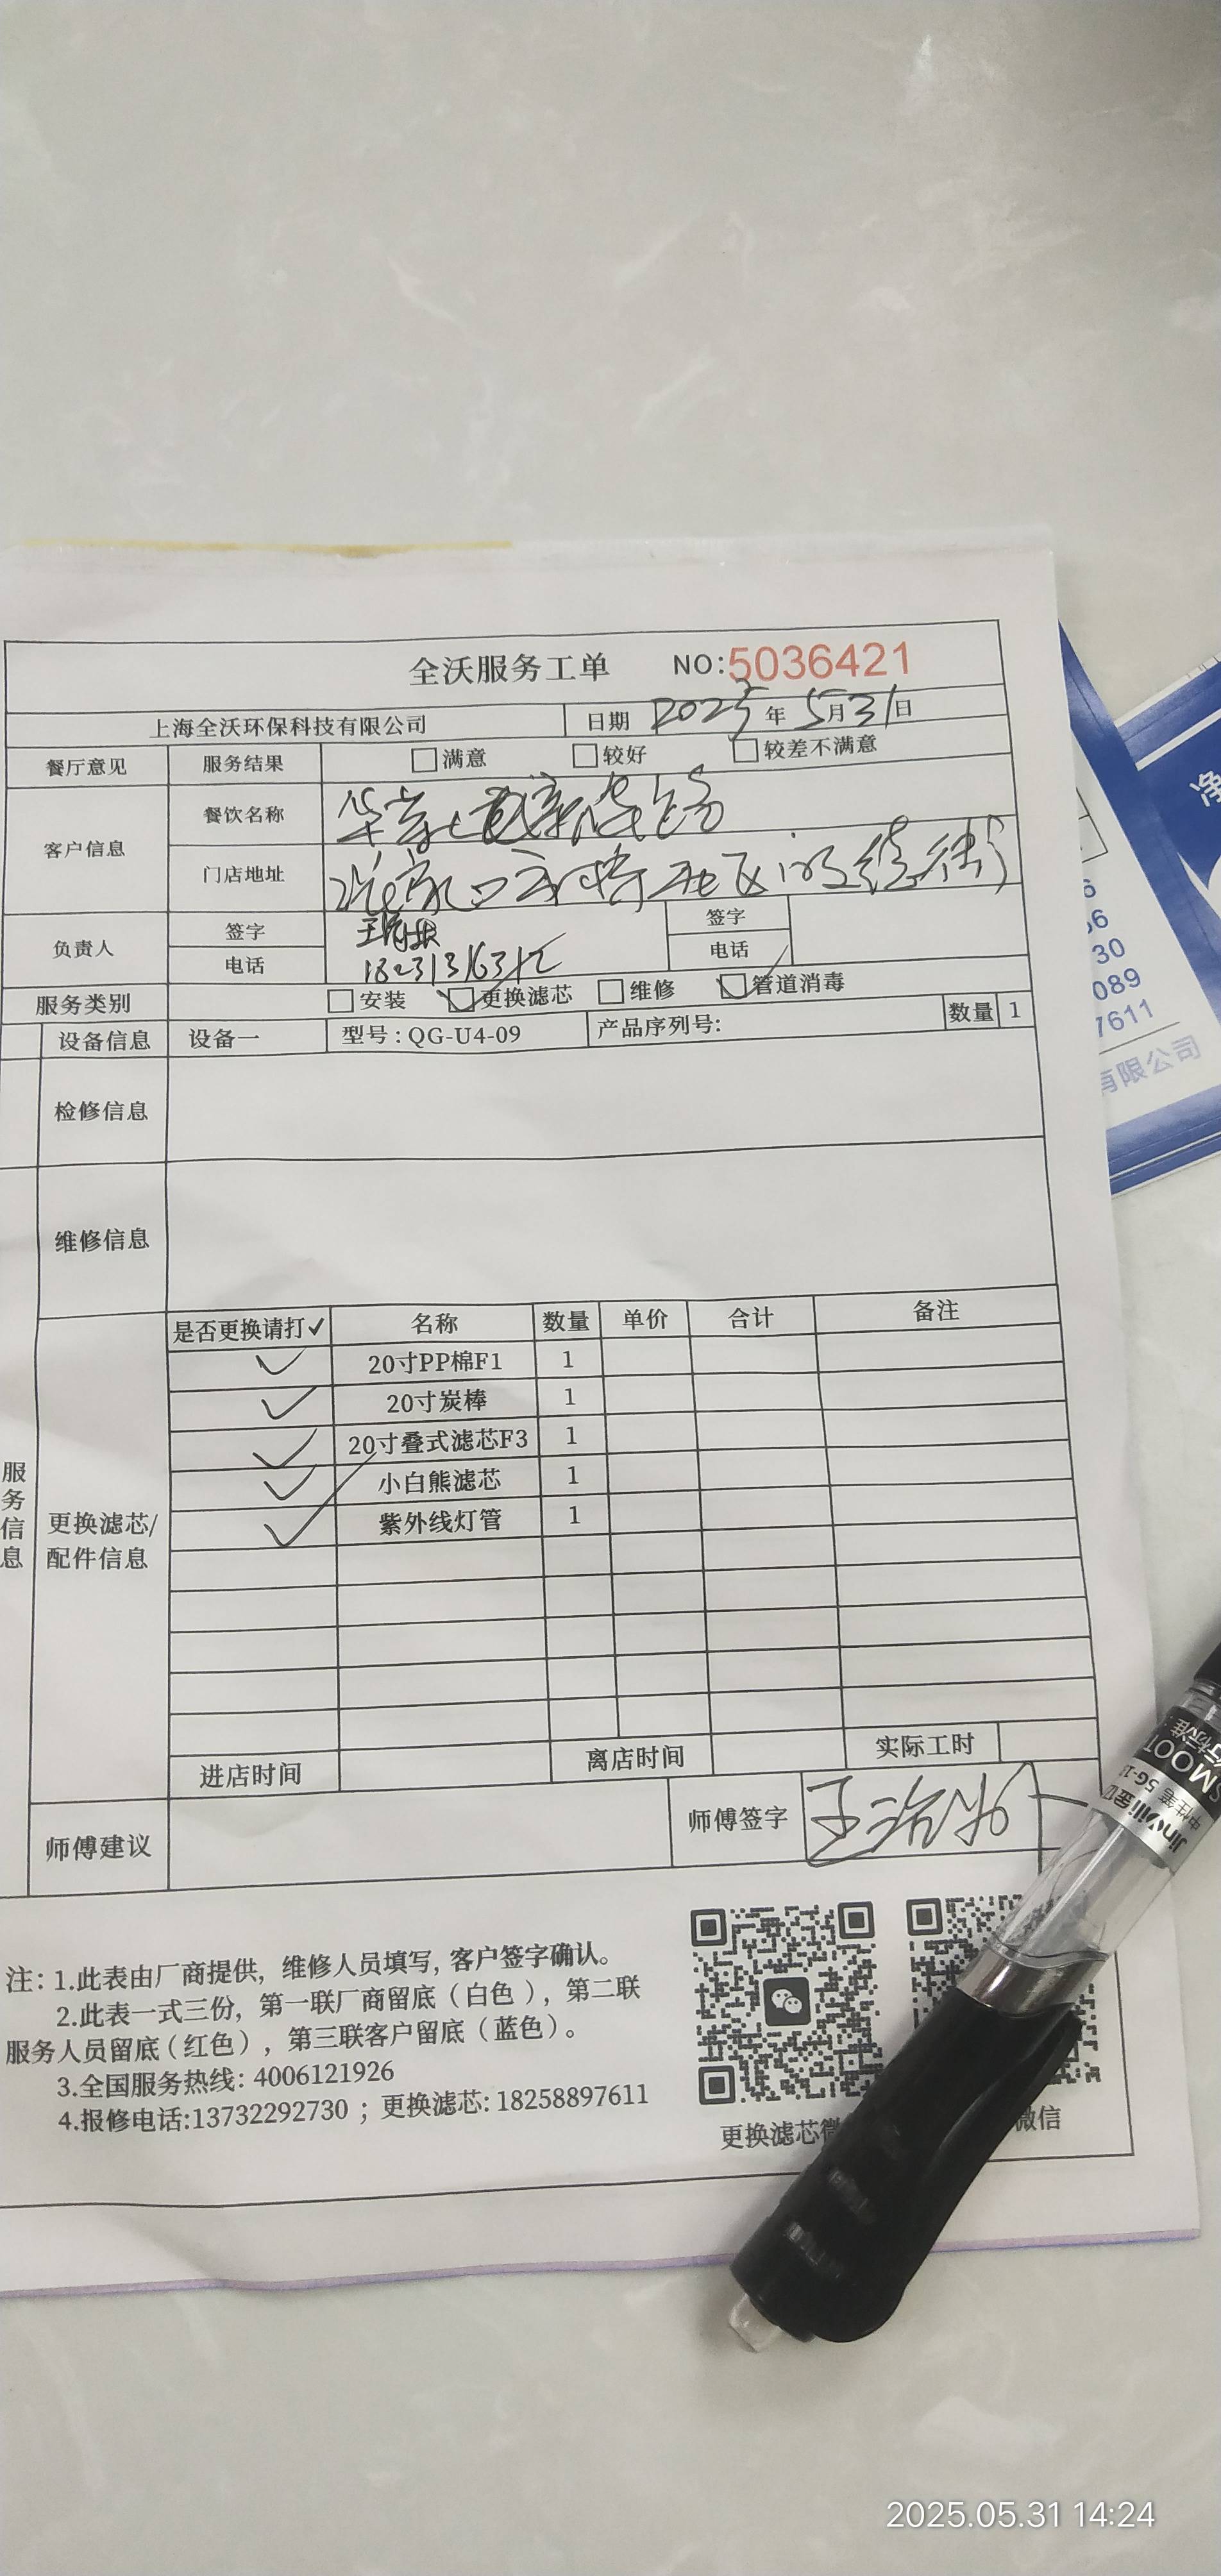 全沃服务工单 NO:5036421
上海全沃环保科技有限公司 日期 2025年5月31日
餐厅意见 服务结果 满意 较好 较差不满意
客户信息 餐饮名称
门店地址
负责人 签字 签字
电话 电话
服务类别 安装 更换滤芯 维修 管道消毒
设备信息 设备一 型号:QG-U4-09 产品序列号: 数量 1
检修信息
维修信息
是否更换请打✓ 名称 数量 单价 合计 备注
20寸PP棉F1 1
20寸炭棒 1
20寸叠式滤芯F3 1
小白熊滤芯 1
紫外线灯管 1
服务信息
更换滤芯/
配件信息
进店时间 离店时间 实际工时
师傅建议 师傅签字
注:1.此表由厂商提供,维修人员填写,客户签字确认。
2.此表一式三份,第一联厂商留底(白色),第二联
服务人员留底(红色),第三联客户留底(蓝色)。
3.全国服务热线:4006121926
4.报修电话:13732292730;更换滤芯:18258897611
更换滤芯微
微信
净
30
089
7611
有限公司
2025.05.31 14:24